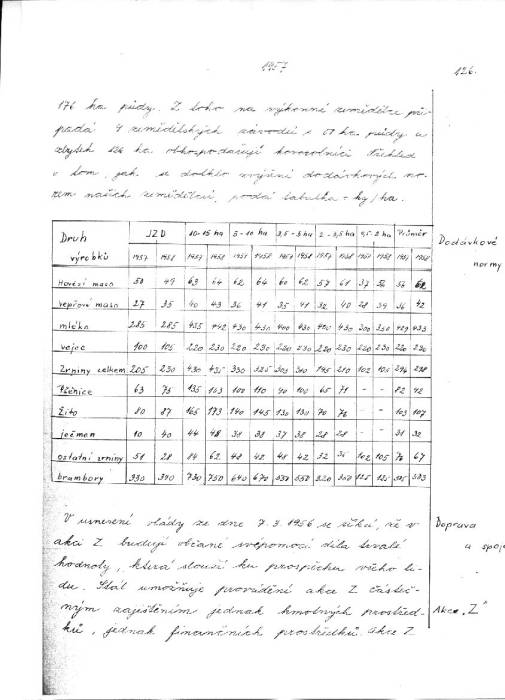 1957
126.
176 ha půdy. Z toho na výkonné zemědělce při-
padá 4 zemědělských závodů s ha půdy a
zbytek ha obhospodařují kovorolníci. Přehled
o tom, jak se dotklo zvýšení dodávkových no-
rem našich zemědělců, podá tabulka - kg/ha.
Dodávkové
normy
Druh výrobků JZD 10-15 ha 5-10 ha 3,5-5 ha 2-3,5 ha 0,5-2 ha Průměr
1957 1958 1957 1958 1957 1958 1957 1958 1957 1958 1957 1958 1957 1958
Hovězí maso 50 49 63 64 62 64 60 62 57 61 37
Vepřové maso 27 35 40 43 36 41 35 41 32 40 28 34 36 42
mléko 285 285 435 442 430 430 400 430 400 430 300 350 433
vejce 100 105 220 230 220 230 220 230 220 230 220 230 220 230
Zrniny celkem 205 230 430 435 330 325 303 300 195 210 102 105
Pšenice 63 75 135 163 100 110 90 100 65 71 - - 82 42
Žito 80 87 165 173 140 145 130 130 70 76 - - 103 107
ječmen 10 40 44 48 38 38 37 38 28 28 - - 31 32
ostatní zrniny 51 28 84 62 48 42 48 42 32 102 105 67
brambory 730 750 640 670 550 125 125
V usnesení vlády ze dne 7.3.1956 se říká, že v
akci Z budují občané svépomocí díla trvalé
hodnoty, která slouží ku prospěchu všeho li-
du. Stát umožňuje provádění akce Z částeč-
ným zajištěním jednak hmotných prostřed-
ků, jednak finančních prostředků. Akce Z
Doprava
a spoje
Akce „Z"